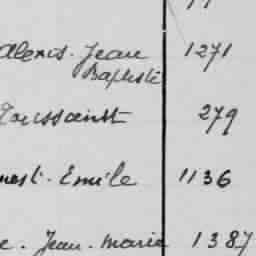 Alexis. Jean 1271
Baptiste
Toussaint 279
Emile 1136
Jean. Marie 1387